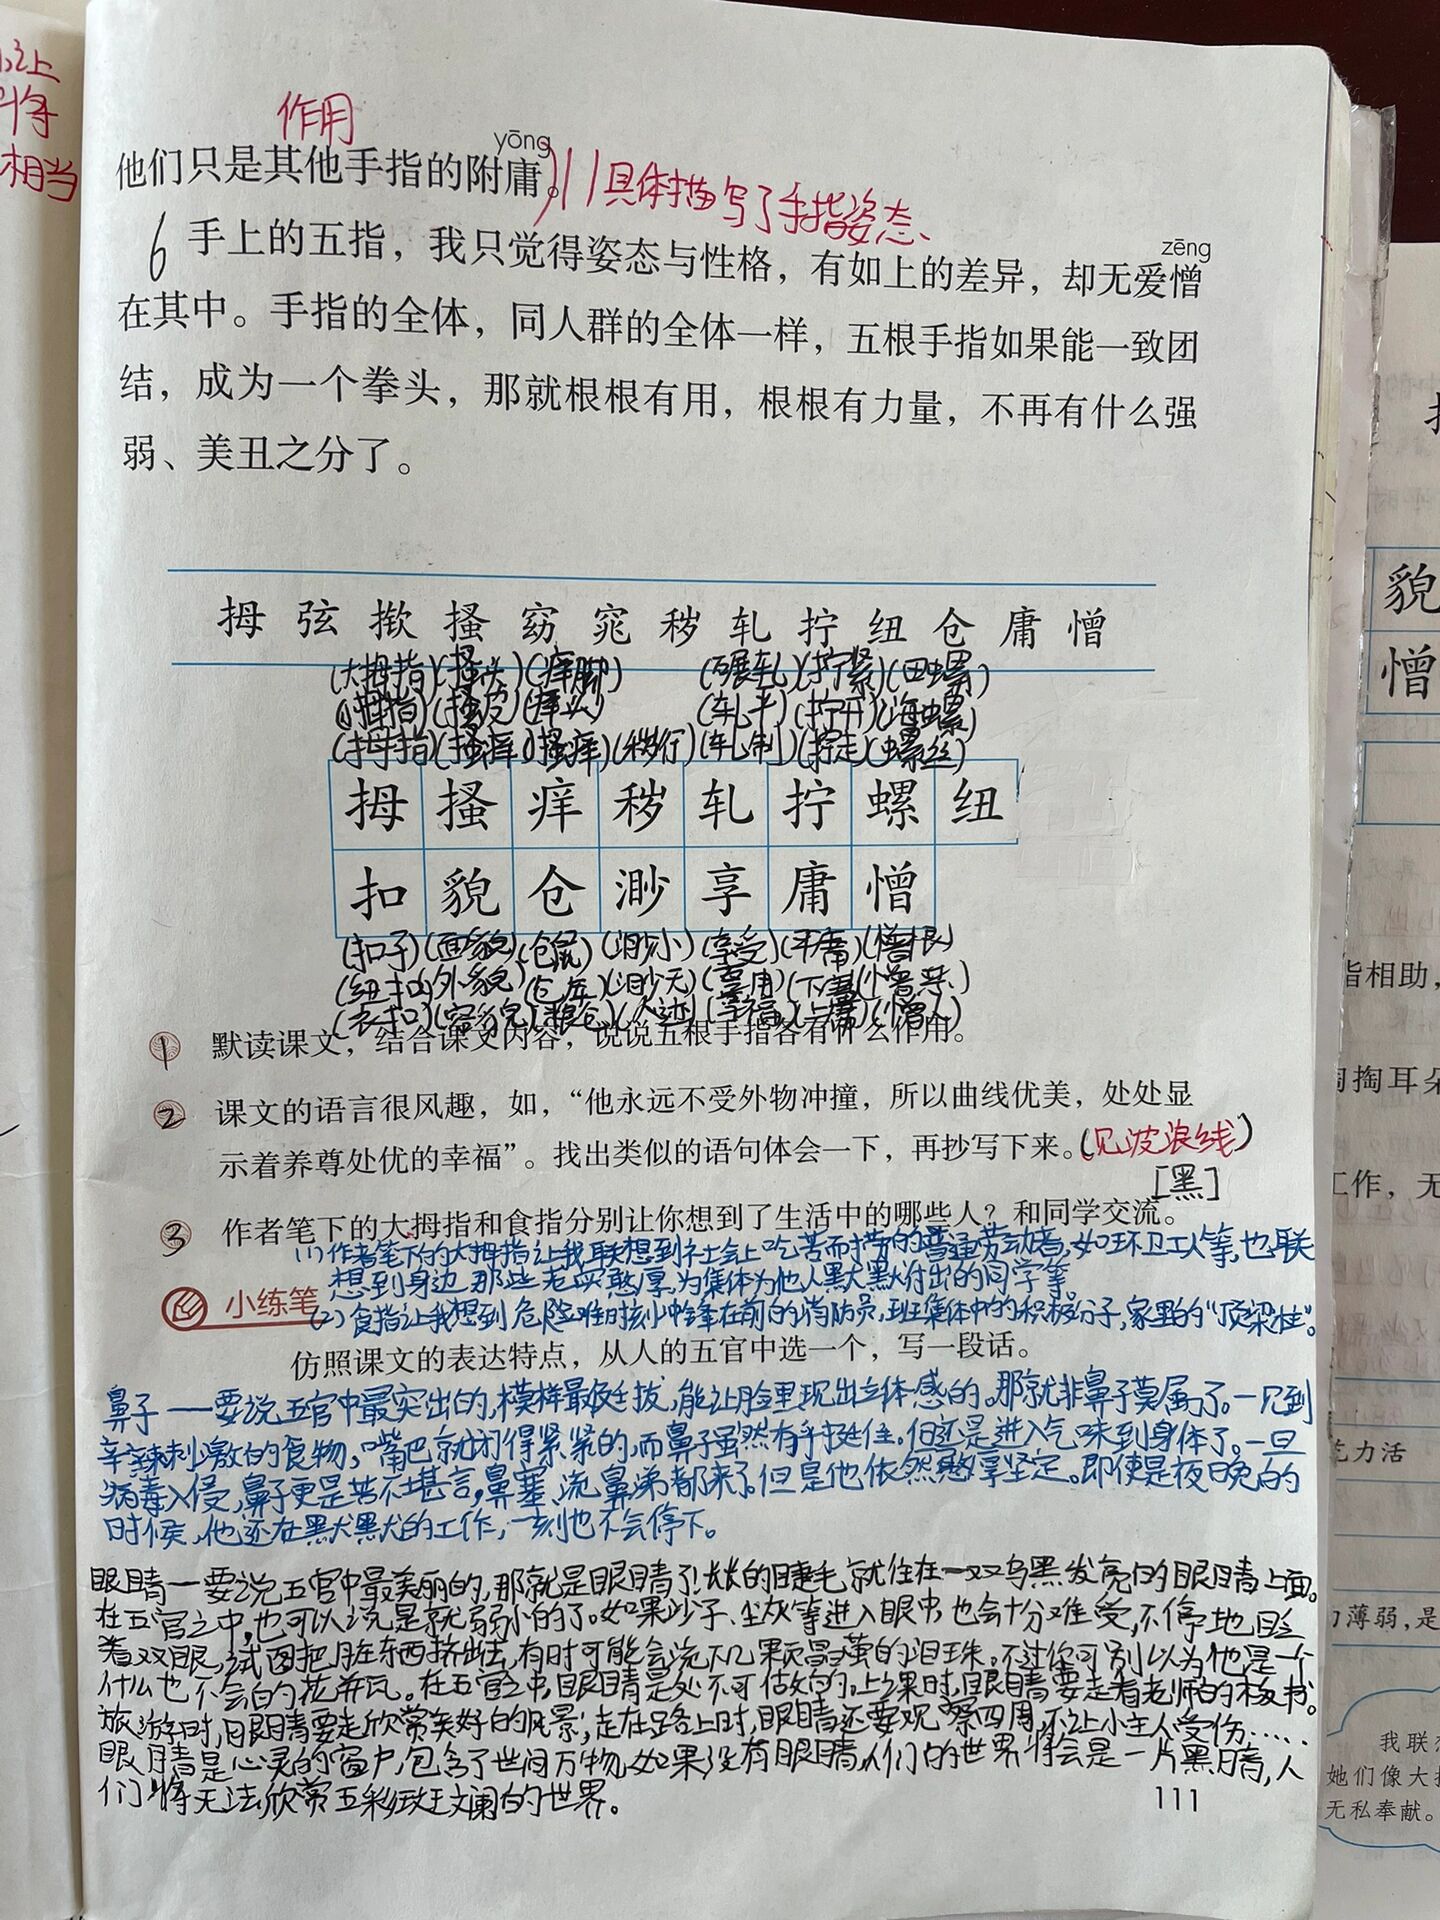 小让
将
相当
作用
yōng
他们只是其他手指的附庸。
)//具体描写了手指姿态、
zēng
6 手上的五指，我只觉得姿态与性格，有如上的差异，却无爱憎
在其中。手指的全体，同人群的全体一样，五根手指如果能一致团
结，成为一个拳头，那就根根有用，根根有力量，不再有什么强
弱、美丑之分了。
拇 弦 揿 搔 窈 窕 秽 轧 拧 纽 仓 庸 憎
(大拇指)(搔头)(痒脚) (碾轧)(拧紧)(田螺)
(小拇指)(搔皮)(痒头) (轧平)(拧开)(海螺)
(拇指)(搔痒)(搔痒)(秽行)(轧制)(拧走)(螺丝)
拇 搔 痒 秽 轧 拧 螺 纽
扣 貌 仓 渺 享 庸 憎
(扣子)(面貌)(仓鼠)(渺小)(享受)(平庸)(憎恨)
(纽扣)(外貌)(仓库)(渺天)(享用)(下庸)(憎恶)
(衣扣)(容貌)(粮仓)(人迹)(享福)(上庸)(憎人)
1 默读课文，结合课文内容，说说五根手指各有什么作用。
2 课文的语言很风趣，如，“他永远不受外物冲撞，所以曲线优美，处处显
示着养尊处优的幸福”。找出类似的语句体会一下，再抄写下来。(见波浪线)
[黑]
3 作者笔下的大拇指和食指分别让你想到了生活中的哪些人？和同学交流。
(1)作者笔下的大拇指让我联想到社会上吃苦而耐劳的普通劳动者，如环卫工人等，也联
想到身边那些老实憨厚，为集体为他人默默付出的同学等。
小练笔
(2)食指让我想到危险难时刻冲锋在前的消防员，班集体中的积极分子，家里的“顶梁柱”。
仿照课文的表达特点，从人的五官中选一个，写一段话。
鼻子——要说五官中最突出的，模样最挺拔，能让脸里现出立体感的。那就非鼻子莫属了。一见到
辛辣刺激的食物，嘴巴就闭得紧紧的，而鼻子虽然有手挺住。但还是进入气味到身体了。一旦
病毒入侵，鼻子更是苦不堪言，鼻塞、流鼻涕都来了。但是他依然憨厚坚定。即使是夜晚的
时候，他还在默默的工作，一刻也不会停下。
眼睛—要说五官中最美丽的，那就是眼睛了！长长的睫毛就住在一双乌黑发亮的眼睛上面。
在五官之中，也可以说是就弱小的了。如果沙子、尘灰等进入眼中，也会十分难受，不停地眨
着双眼，试图把脏东西挤出去，有时可能会流下几颗晶莹的泪珠。不过你可别以为他是一个
什么也不会的花瓶瓦。在五官之中，眼睛是处不可做的。上课时，眼睛要走看老师的板书。
旅游时，眼睛要走欣赏美好的风景；走在路上时，眼睛还要观察四周，不让小主人受伤……
眼睛是心灵的窗户，包含了世间万物，如果没有眼睛，人们的世界将会是一片黑暗，人
们将无法欣赏五彩斑斓的世界。
111
貌
憎
指相助，
掏掏耳朵
工作，无
力活
薄弱，是
我联想
她们像大拇
无私奉献。